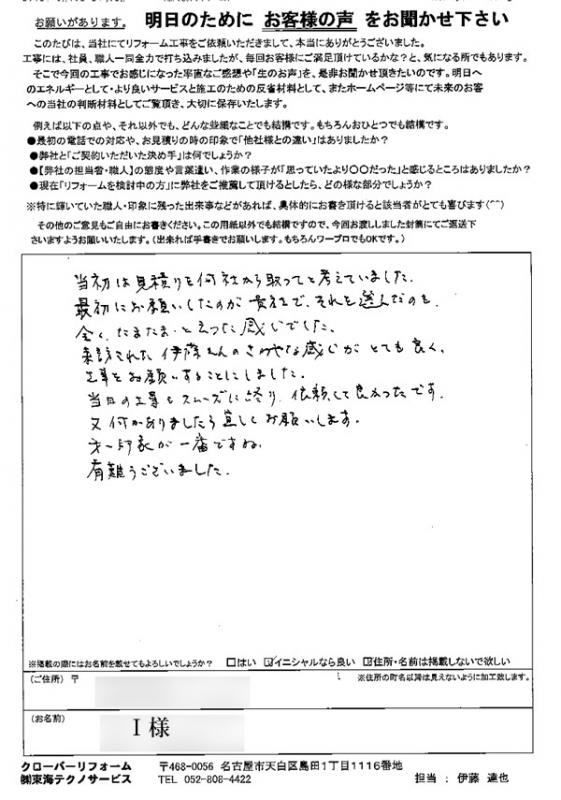 お願いがあります。 明日のために お客様の声 をお聞かせ下さい
このたびは、当社にてリフォーム工事をご依頼いただきまして、本当にありがとうございました。
工事には、社員、職人一同全力で打ち込みましたが、毎回お客様にご満足頂けているかな?と、気になる所でもあります。
そこで今回の工事でお感じになった率直なご感想や「生のお声」を、是非お聞かせ頂きたいのです。明日へ
のエネルギーとして・より良いサービスと施工のための反省材料として、またホームページ等にて未来のお客
への当社の判断材料としてご覧頂き、大切に保存いたします。
例えば以下の点や、それ以外でも、どんな些細なことでも結構です。もちろんおひとつでも結構です。
●最初の電話での対応や、お見積りの時の印象で「他社様との違い」はありましたか?
●弊社と「ご契約いただいた決め手」は何でしょうか?
●【弊社の担当者・職人】の態度や言葉遣い、作業の様子が「思っていたより〇〇だった」と感じるところはありましたか?
●現在「リフォームを検討中の方」に弊社をご推薦して頂けるとしたら、どの様な部分でしょうか?
※特に輝いていた職人・印象に残った出来事などがあれば、具体的にお書き頂けると該当者がとても喜びます(^^)
その他のご意見もご自由にお書きください。この用紙以外でも結構ですので、今回お渡ししました封筒にてご返送下
さいますようお願いいたします。(出来れば手書きでお願いします。もちろんワープロでもOKです。)
当初は見積りを何社から取ってと考えていました。
最初にお願いしたのが貴社で、それを選んだのも、
全く、たまたまといった感じでした。
来訪された伊藤さんのさわやかな感じがとても良く、
工事をお願いすることにしました。
当日の工事もスムーズに終り、依頼して良かったです。
又何かありましたら宜しくお願いします。
第一印象が一番ですね。
有難うございました。
※掲載の際にはお名前を載せてもよろしいでしょうか? □はい ☑イニシャルなら良い ☑住所・名前は掲載しないで欲しい
(ご住所) 〒 ※住所の町名以降は見えないように加工致します。
(お名前)
I 様
クローバーリフォーム 〒468-0056 名古屋市天白区島田1丁目1116番地
㈱東海テクノサービス TEL 052-808-4422 担当 : 伊藤 達也